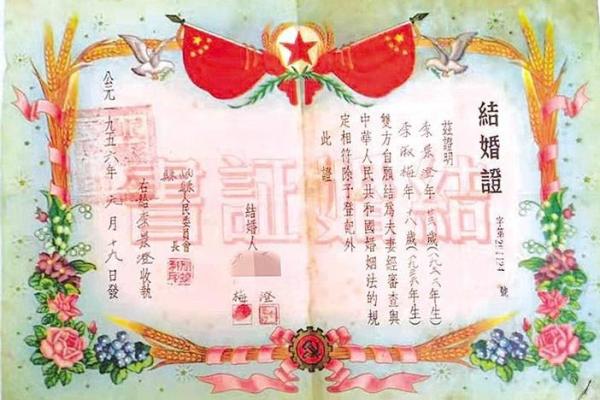 結婚證
字第 號
茲證明
李景澄年 歲(一九三三年生)
李淑梅年十八歲(一九 年生)
雙方自願結為夫妻經審查與
中華人民共和國婚姻法的規
定相符除予登記外
此證
結婚人
澄
梅
縣人民委員會
縣長
右給李景澄收執
公元一九五六年 月十九日發
結婚証書